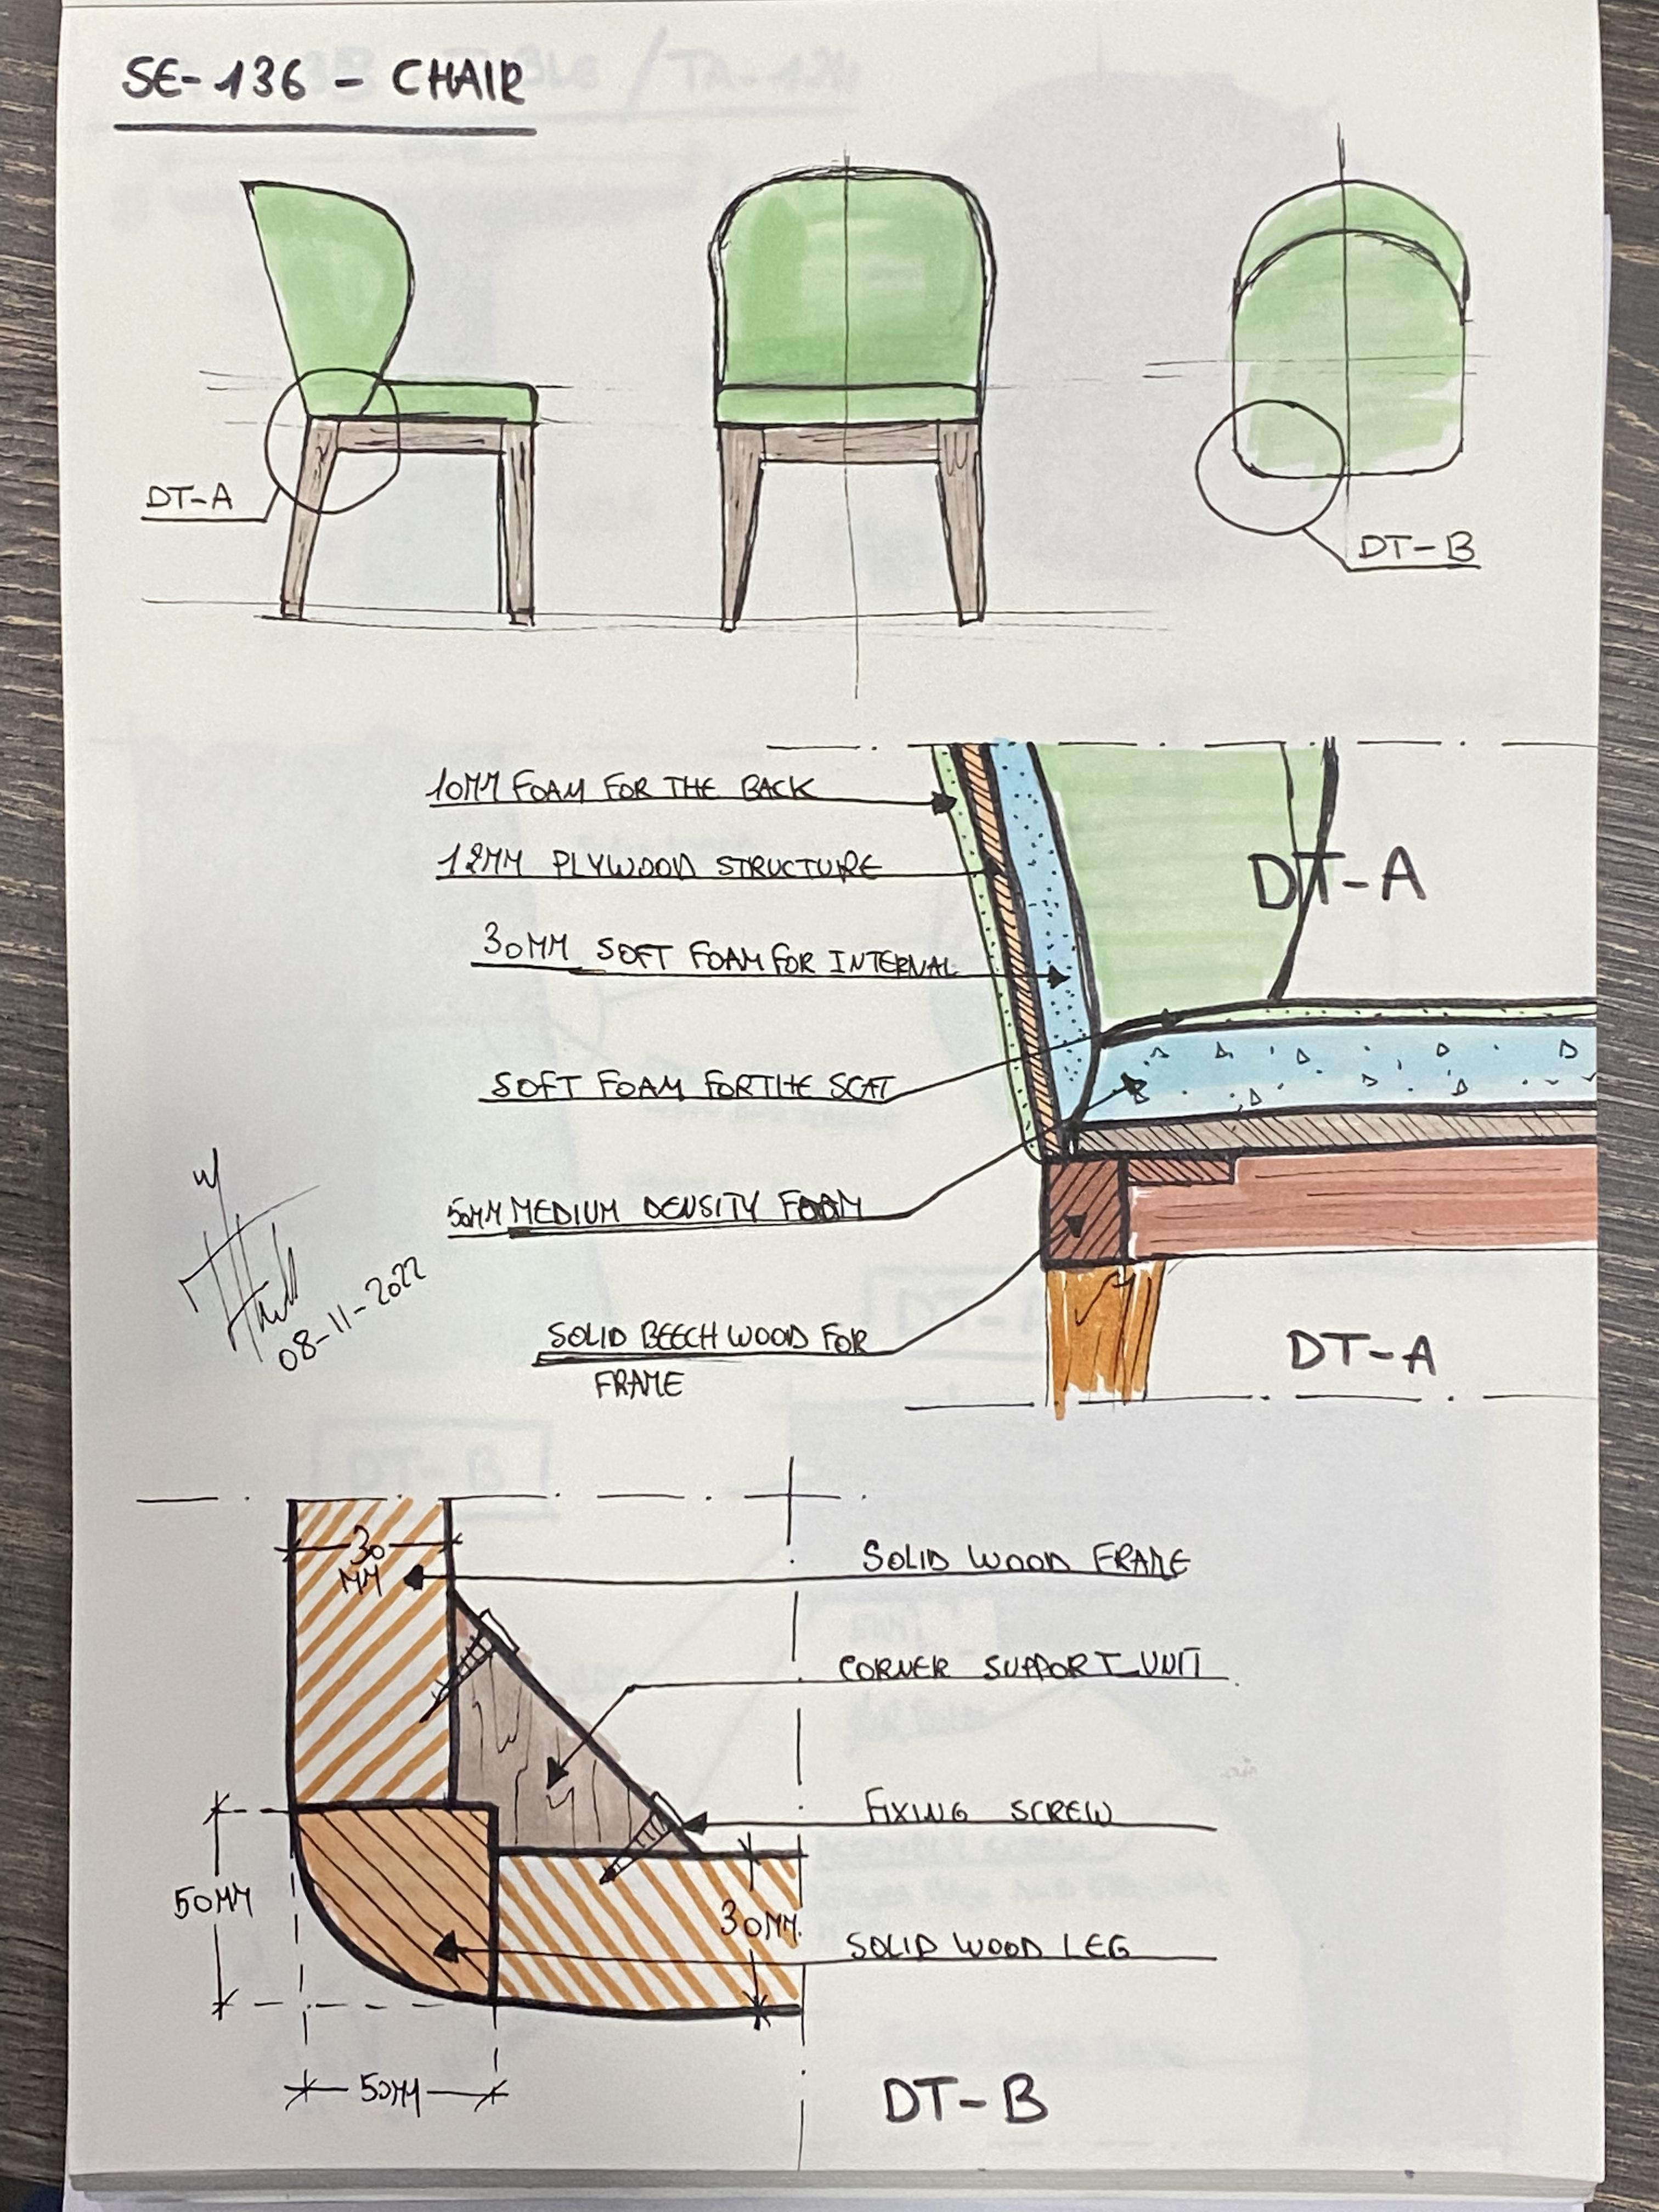 SE-136 - CHAIR
DT-A
DT-B
10MM FOAM FOR THE BACK
12MM PLYWOOD STRUCTURE
DT-A
30MM SOFT FOAM FOR INTERNAL
SOFT FOAM FOR THE SEAT
50MM MEDIUM DENSITY FOAM
08-11-2022
SOLID BEECH WOOD FOR
FRAME
DT-A
30
MM
SOLID WOOD FRAME
CORNER SUPPORT UNIT
FIXING SCREW
50MM
30MM
SOLID WOOD LEG
50MM
DT-B